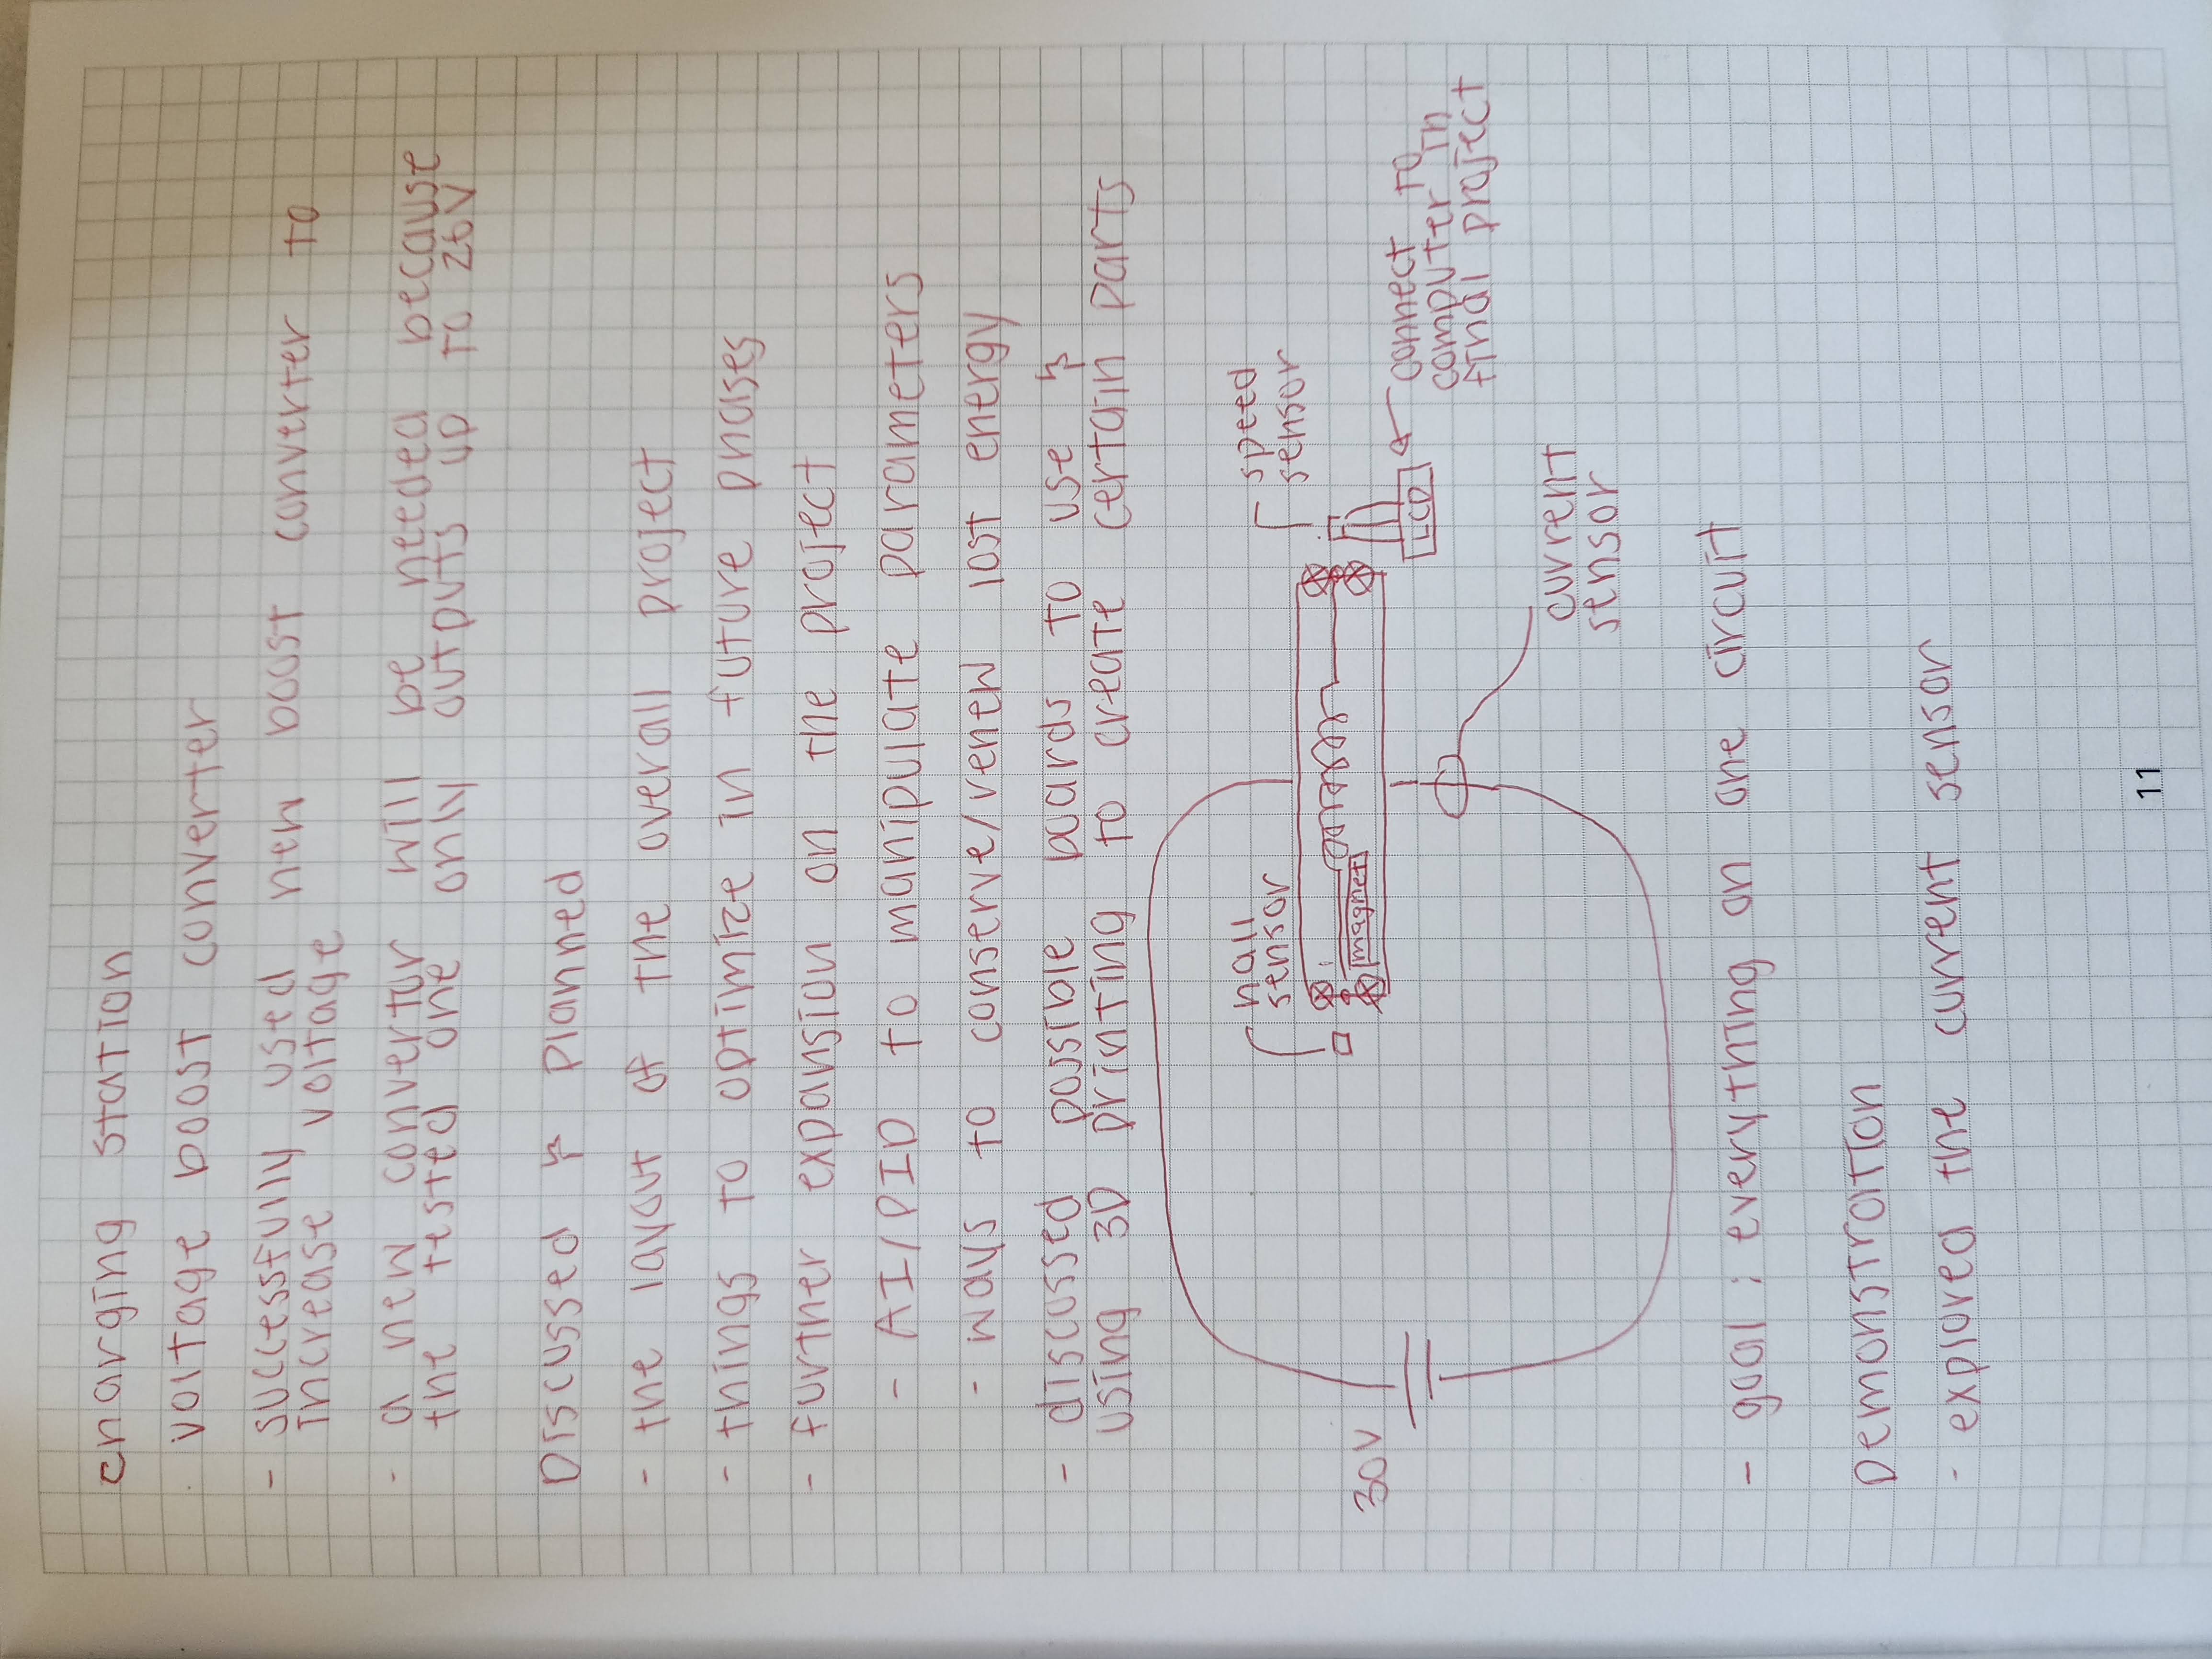 charging station
voltage boost converter
- successfully used new boost converter to
increase voltage
- a new convertor will be needed because
the tested one only outputs up to 26V
Discussed & Planned
- the layout of the overall project
- things to optimize in future phases
- further expansion on the project
- AI/PID to manipulate parameters
- ways to conserve/renew lost energy
- discussed possible boards to use &
using 3D printing to create certain parts
hall
sensor
speed
sensor
30V
magnet
LCD
connect to
computer in
final project
current
sensor
- goal : everything on one circuit
Demonstration
- explored the current sensor
11